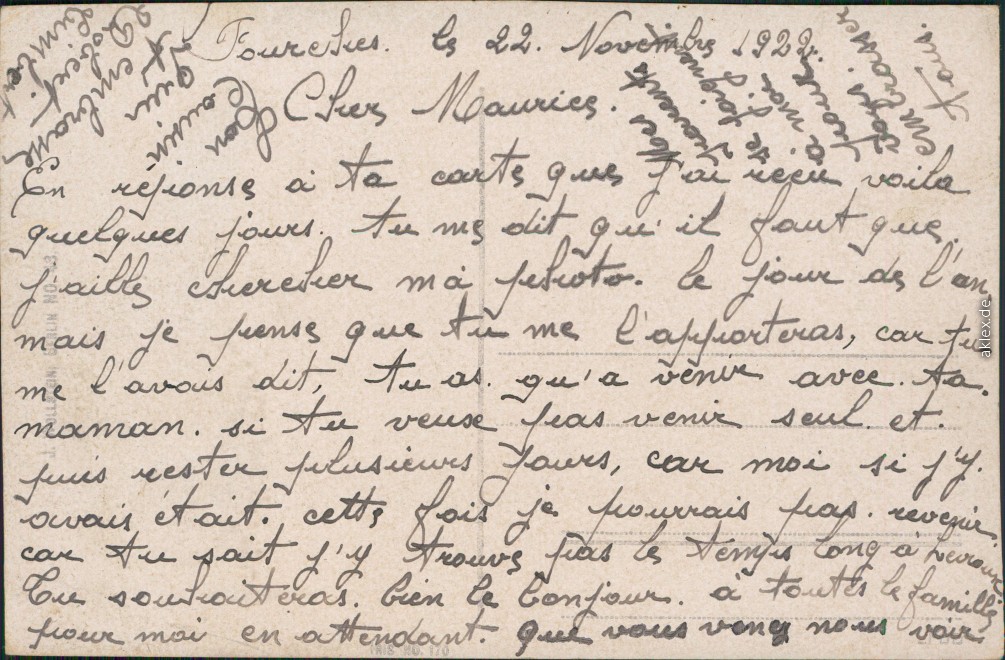 Fourches. le 22. Novembre 1922.
Cher Maurice.
En réponse à ta carte que j'ai reçu voila
quelques jours. tu me dit qu'il faut que
j'aille chercher ma photo. le jour de l'an
mais je pense que tu me l'apporteras, car tu
me l'avais dit, tu as. qu'a venir avec. ta.
maman. si tu veux pas venir seul. et.
puis rester plusieurs jours, car moi si j'y.
avais était. cette fois je pourrais pas. revenir
car tu sait j'y trouve pas le temps long à
Tu souhaiteras. bien le bonjour. à toutes le famille
pour moi en attendant. que vous venez nous voir.
Ton
Cousin
qui
t'embrasse
Robert.
Vos
parents
se joignent
à moi
pour
vous
embrasser
tous
aklex.de